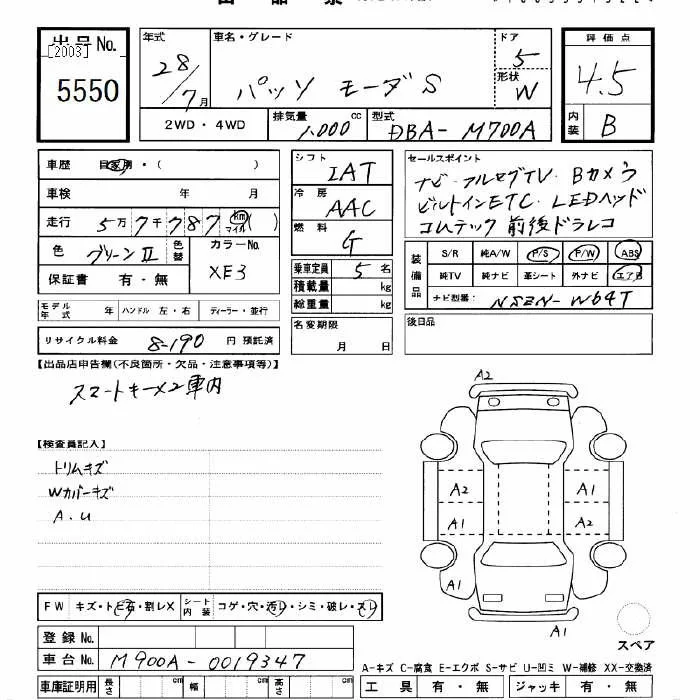 出品票
出品No. [2003] 5550
年式 28/7月
車名・グレード パッソ モーダS
ドア 5
形状 W
評価点 4.5
内装 B
2WD・4WD
排気量 1,000 cc
型式 DBA-M700A
車歴 自家用・(　)
車検 年 月
走行 5万7千787 km マイル ( )
色 グリーンⅡ 色替
カラーNo. XE3
保証書 有・無
シフト IAT
冷房 AAC
燃料 G
乗車定員 5名
積載量 kg
総重量 kg
セールスポイント
ナビ・フルセグTV・Bカメラ
ビルトインETC・LEDヘッド
コムテック 前後ドラレコ
装備品 S/R 純A/W P/S P/W ABS
純TV 純ナビ 革シート 外ナビ エアB
ナビ型番: NSZN-W64T
モデル年式 年 ハンドル 左・右 ディーラー・並行
リサイクル料金 8190 円 預託済
名変期限 月 日
後日品
【出品店申告欄(不良箇所・欠品・注意事項等)】
スマートキー×2 車内
【検査員記入】
トリムキズ
Wカバーキズ
A.U
A2
A2 A1
A1 A2
A1 A1
A1
スペア
FW キズ・トビ石・割レX シート内装 コゲ・穴・汚レ・シミ・破レ・スレ
登録No.
車台No. M700A-0019347
A-キズ C-腐食 E-エクボ S-サビ U-凹ミ W-補修 XX-交換済
車庫証明用 長さ cm 幅 cm 高さ cm
工具 有・無 ジャッキ 有・無